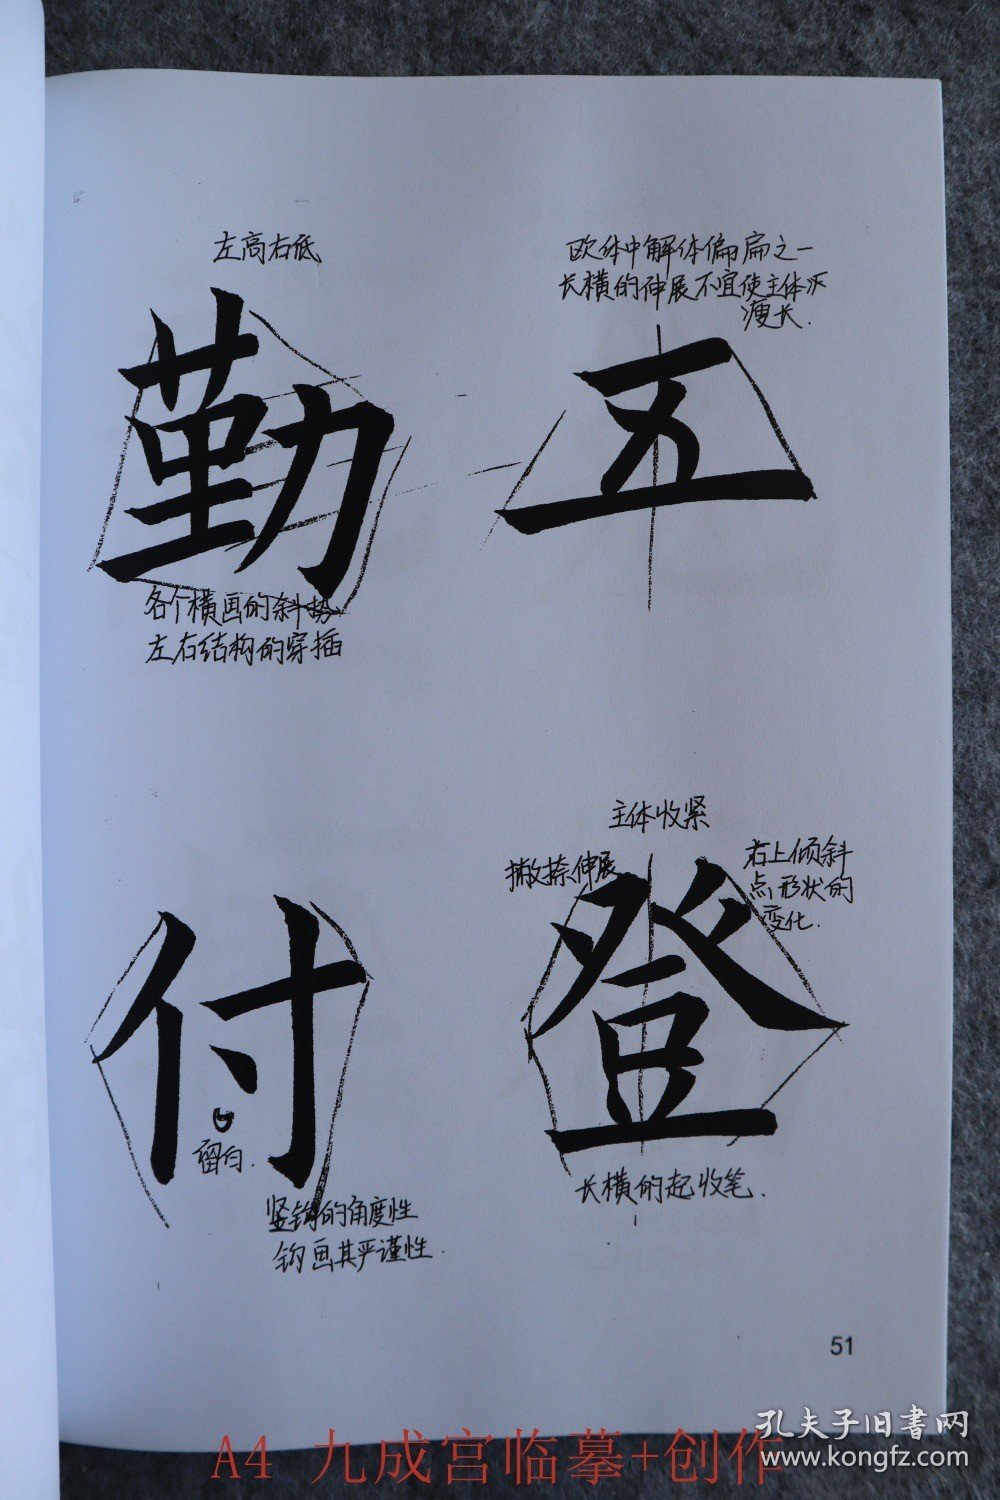 左高右低
勤
各个横画的斜势
左右结构的穿插
欧体中解体偏扁之一
长横的伸展不宜使主体
瘦长.
五
付
留白.
竖钩的角度性
钩画其严谨性.
主体收紧
撇捺伸展
右上倾斜
点形状的
变化.
登
长横的起收笔.
51
孔夫子旧書网
www.kongfz.com
A4 九成宫临摹+创作